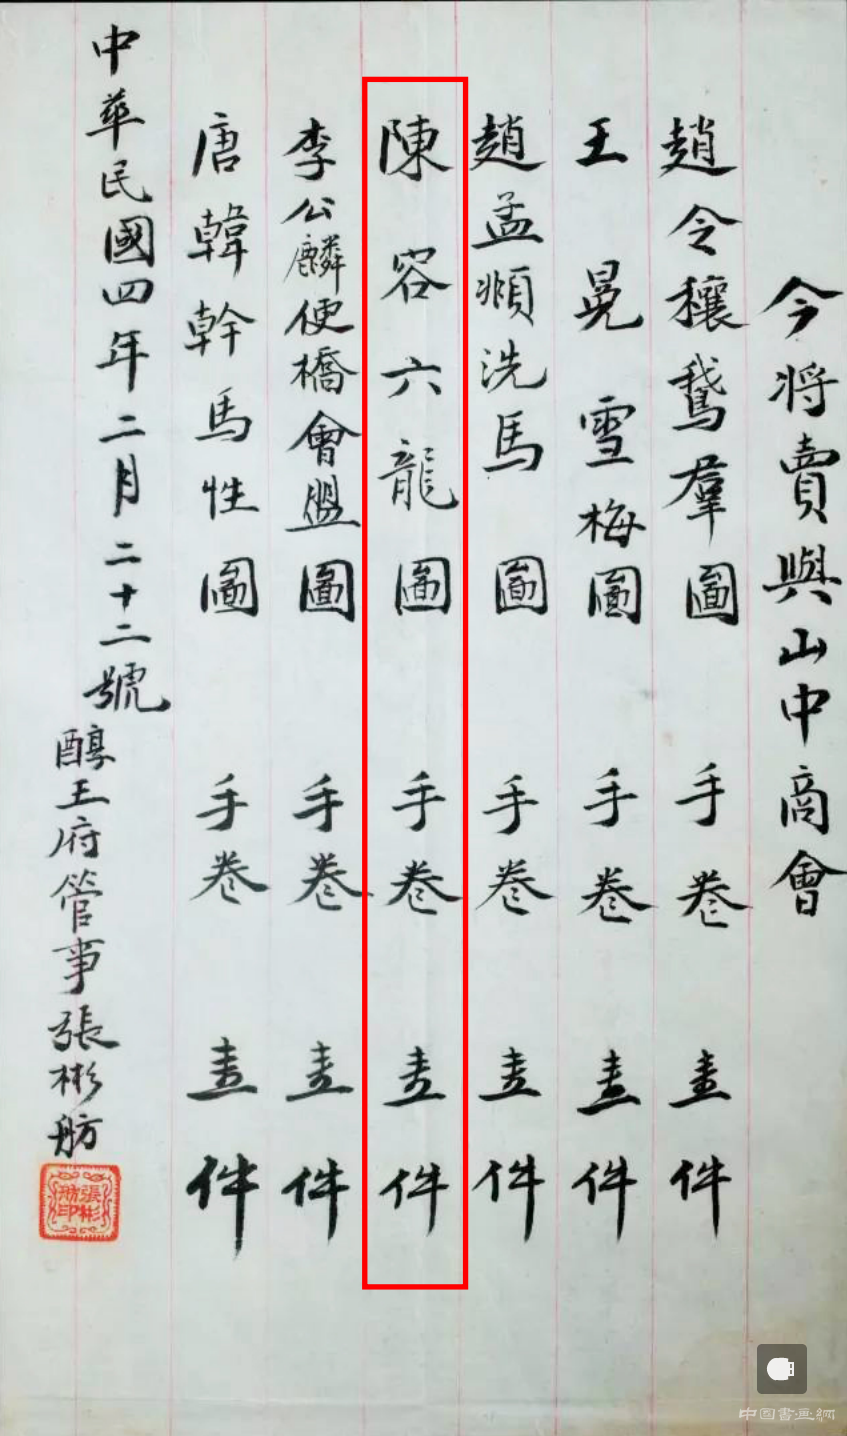 今將賣與山中商會
趙令穰鵞羣圖 手卷 壹件
王晃雪梅圖 手卷 壹件
趙孟頫洗馬圖 手卷 壹件
陳容六龍圖 手卷 壹件
李公麟便橋會盟圖 手卷 壹件
唐韓幹馬性圖 手卷 壹件
中華民國四年二月二十二號
醇王府管事張彬舫
張彬舫印
中国書画網